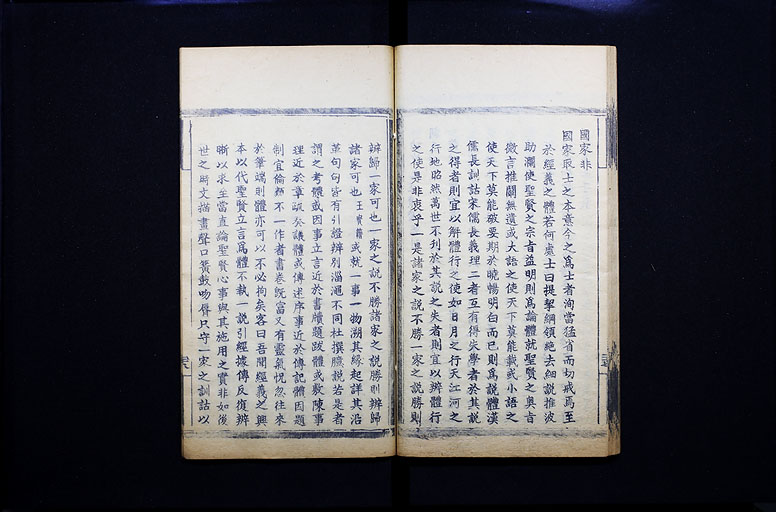 國家非
國家取士之本意今之爲士者洵當猛省而切戒焉至
於經義之體若何處士曰提挈綱領絶去細說推波
助瀾使聖賢之宗旨益明則爲論體就聖賢之奥旨
微言推闡無遺或大語之使天下莫能載或小語之
使天下莫能破要期於曉暢明白而已則爲說體漢
儒長訓詁宋儒長義理二者互有得失學者於其說
之得者則宜以解體行之使如日月之行天江河之
行地昭然萬世不利於其說之失者則宜以辨體行
之使是非衷乎一是諸家之說不勝一家之說勝則
辨歸一家可也一家之說不勝諸家之說勝則辨歸
諸家可也王實齋或就一事一物溯其緣起詳其沿
革句句皆有引證辨别淄澠不同杜撰臆說若是者
謂之考體或因事立言近於書牘題跋體或敷陳事
理近於章疏奏議體或傳述序事近於傳記體因題
制宜倫類不一作者書卷既富又有靈氣恍忽往來
於筆端則體亦可以不必拘矣客曰吾聞經義之興
本以代聖賢立言爲體不執一說引經據傳反復辨
晰以求至當直論聖賢心事與其施用之實非如後
世之時文描畫聲口簧鼓吻脣只守一家之訓詁以